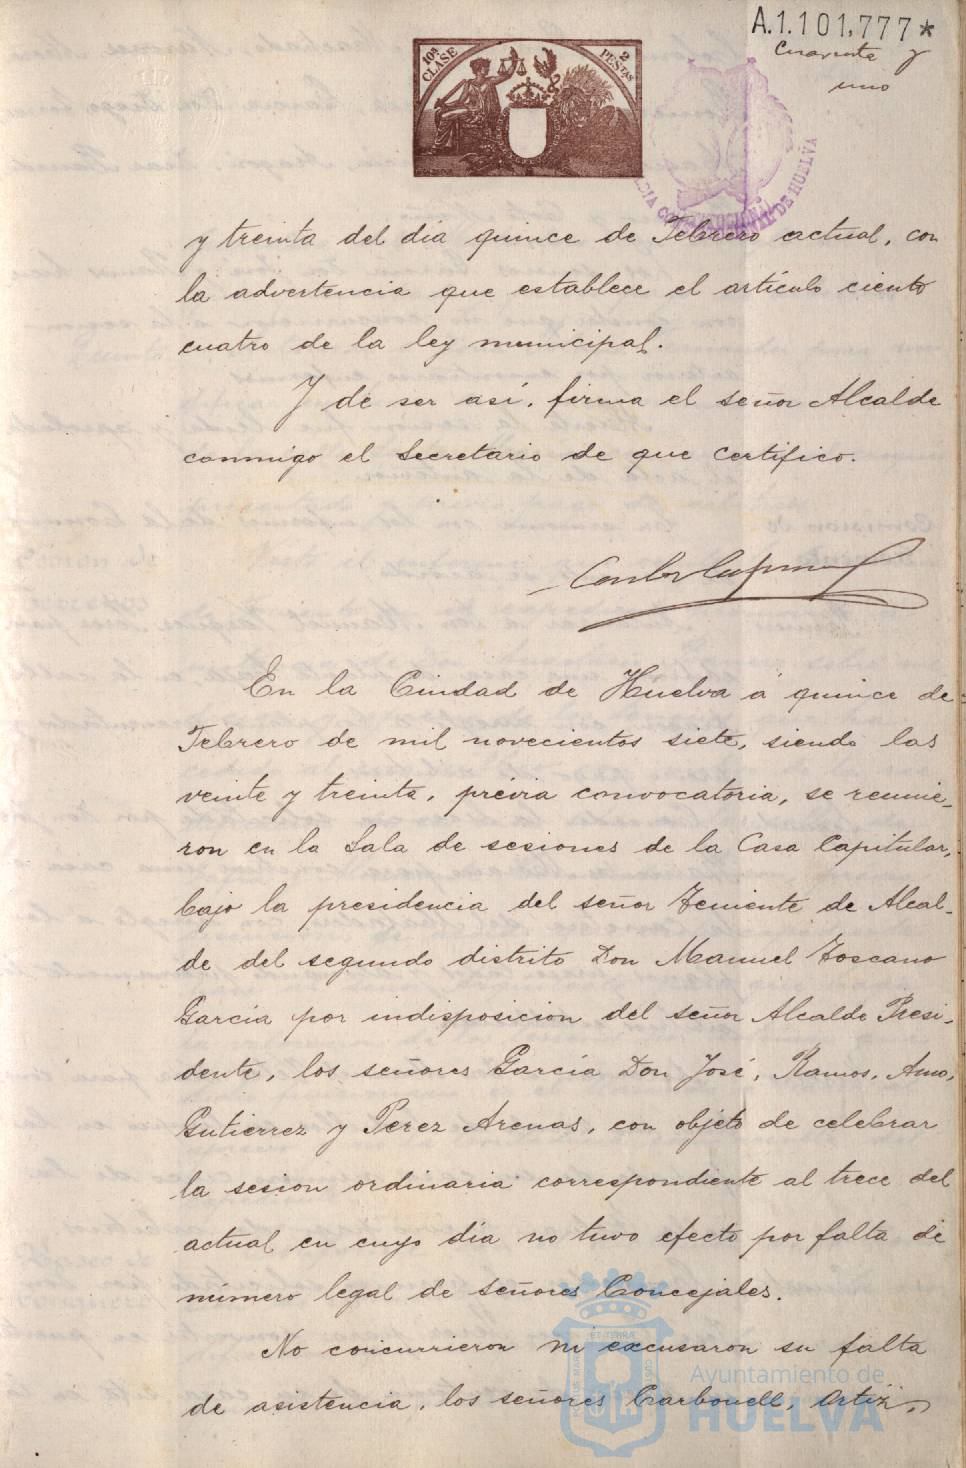 A.1.101,777*
Cuarenta y
uno
10ª CLASE
2 PESETAS
CONSTITUCIONAL DE HUELVA
y treinta del dia quince de Febrero actual, con
la advertencia que establece el artículo ciento
cuatro de la ley municipal.
Y de ser así, firma el señor Alcalde
conmigo el Secretario de que certifico.
En la Ciudad de Huelva á quince de
Febrero de mil novecientos siete, siendo las
veinte y treinta, prévia convocatoria, se reunie-
ron en la Sala de sesiones de la Casa Capitular,
bajo la presidencia del señor Teniente de Alcal-
de del segundo distrito Don Manuel Toscano
García por indisposicion del señor Alcalde Presi-
dente, los señores García Don José, Ramos, Amo,
Gutierrez y Perez Arenas, con objeto de celebrar
la sesion ordinaria correspondiente al trece del
actual en cuyo día no tuvo efecto por falta de
número legal de señores Concejales.
No concurrieron ni excusaron su falta
de asistencia, los señores Carbonell, Ortiz,
Ayuntamiento de
HUELVA